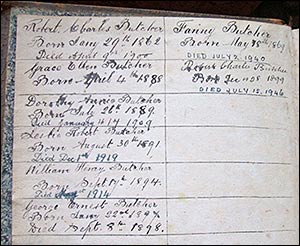 Robert Charles Butcher
Born Jany 29th 1862
Died April 9th
Grace Ellen Butcher
Born April 4th 1888
Dorothy Annie Butcher
Born July 20th 1889.
Died January 417 1909
Leslie Robert Butcher
Born August 30th 1891.
Died Decr 1st 1919
William Henry Butcher
Born Septr 17th 1894.
Died 1914
George Ernest Butcher
Born Jany 22nd 1897
Died Sept. 8th 1898.
Fanny Butcher
Born May 8th 1869
DIED JULY 2, 1940
Charles Butcher
Born 1899
DIED JULY 15, 1946